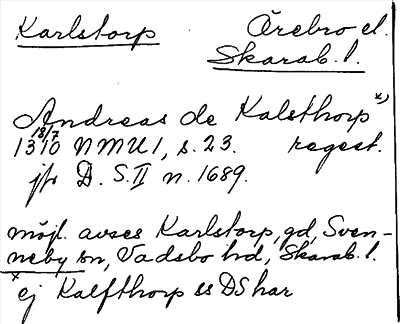 Karlstorp Örebro el.
Skarab. l.
Andreas de Kalsthorp x)
18/7
1310 NMU 1, s. 23. regest.
jfr D. S. II n. 1689.
möjl. avses Karlstorp, gd, Sven-
neby sn, Vadsbo hd, Skarab. l.
x ej Kalfthorp ss DS har